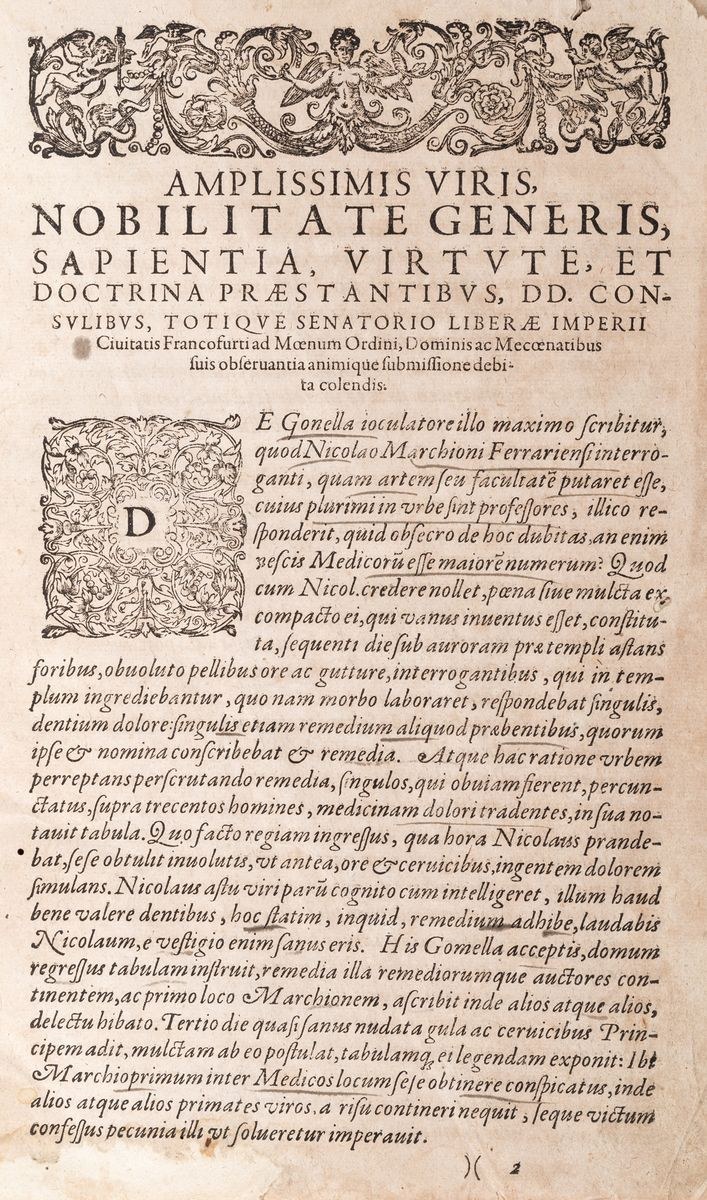 AMPLISSIMIS VIRIS,
NOBILITATE GENERIS,
SAPIENTIA, VIRTVTE, ET
DOCTRINA PRÆSTANTIBVS, DD. CON-
SVLIBVS, TOTIQVE SENATORIO LIBERÆ IMPERII
Ciuitatis Francofurti ad Mœnum Ordini, Dominis ac Mecœnatibus
suis obſeruantia animique ſubmiſſione debi-
ta colendis.
DE Gonella ioculatore illo maximo ſcribitur,
quod Nicolao Marchioni Ferrarienſi interro-
ganti, quam artem ſeu facultatē putaret eſſe,
cuius plurimi in vrbe ſint profeſſores, illico re-
ſponderit, quid obſecro de hoc dubitas, an enim
neſcis Medicorũ eſſe maiorē numerum? Quod
cum Nicol. credere nollet, pœna ſiue mulcta ex
compacto ei, qui vanus inuentus eſſet, conſtitu-
ta, ſequenti die ſub auroram præ templi aſtans
foribus, obuoluto pellibus ore ac gutture, interrogantibus, qui in tem-
plum ingrediebantur, quo nam morbo laboraret, reſpondebat ſingulis,
dentium dolore: ſingulis etiam remedium aliquod præbentibus, quorum
ipſe & nomina conſcribebat & remedia. Atque hac ratione vrbem
perreptans perſcrutando remedia, ſingulos, qui obuiam fierent, percun-
ctatus, ſupra trecentos homines, medicinam dolori tradentes, in ſua no-
tauit tabula. Quo facto regiam ingreſſus, qua hora Nicolaus prande-
bat, ſeſe obtulit inuolutis, vt antea, ore & ceruicibus, ingentem dolorem
ſimulans. Nicolaus aſtu viri parũ cognito cum intelligeret, illum haud
bene valere dentibus, hoc ſtatim, inquid, remedium adhibe, laudabis
Nicolaum, e veſtigio enim ſanus eris. His Gomella acceptis, domum
regreſſus tabulam inſtruit, remedia illa remediorumque auctores con-
tinentem, ac primo loco Marchionem, aſcribit inde alios atque alios,
delectu hibato. Tertio die quaſi ſanus nudata gula ac ceruicibus Prin-
cipem adit, mulctam ab eo poſtulat, tabulamq; ei legendam exponit: Ibi
Marchio primum inter Medicos locum ſeſe obtinere conſpicatus, inde
alios atque alios primates viros, a riſu contineri nequit, ſeque victum
confeſſus pecunia illi vt ſolueretur imperauit.
)( 2